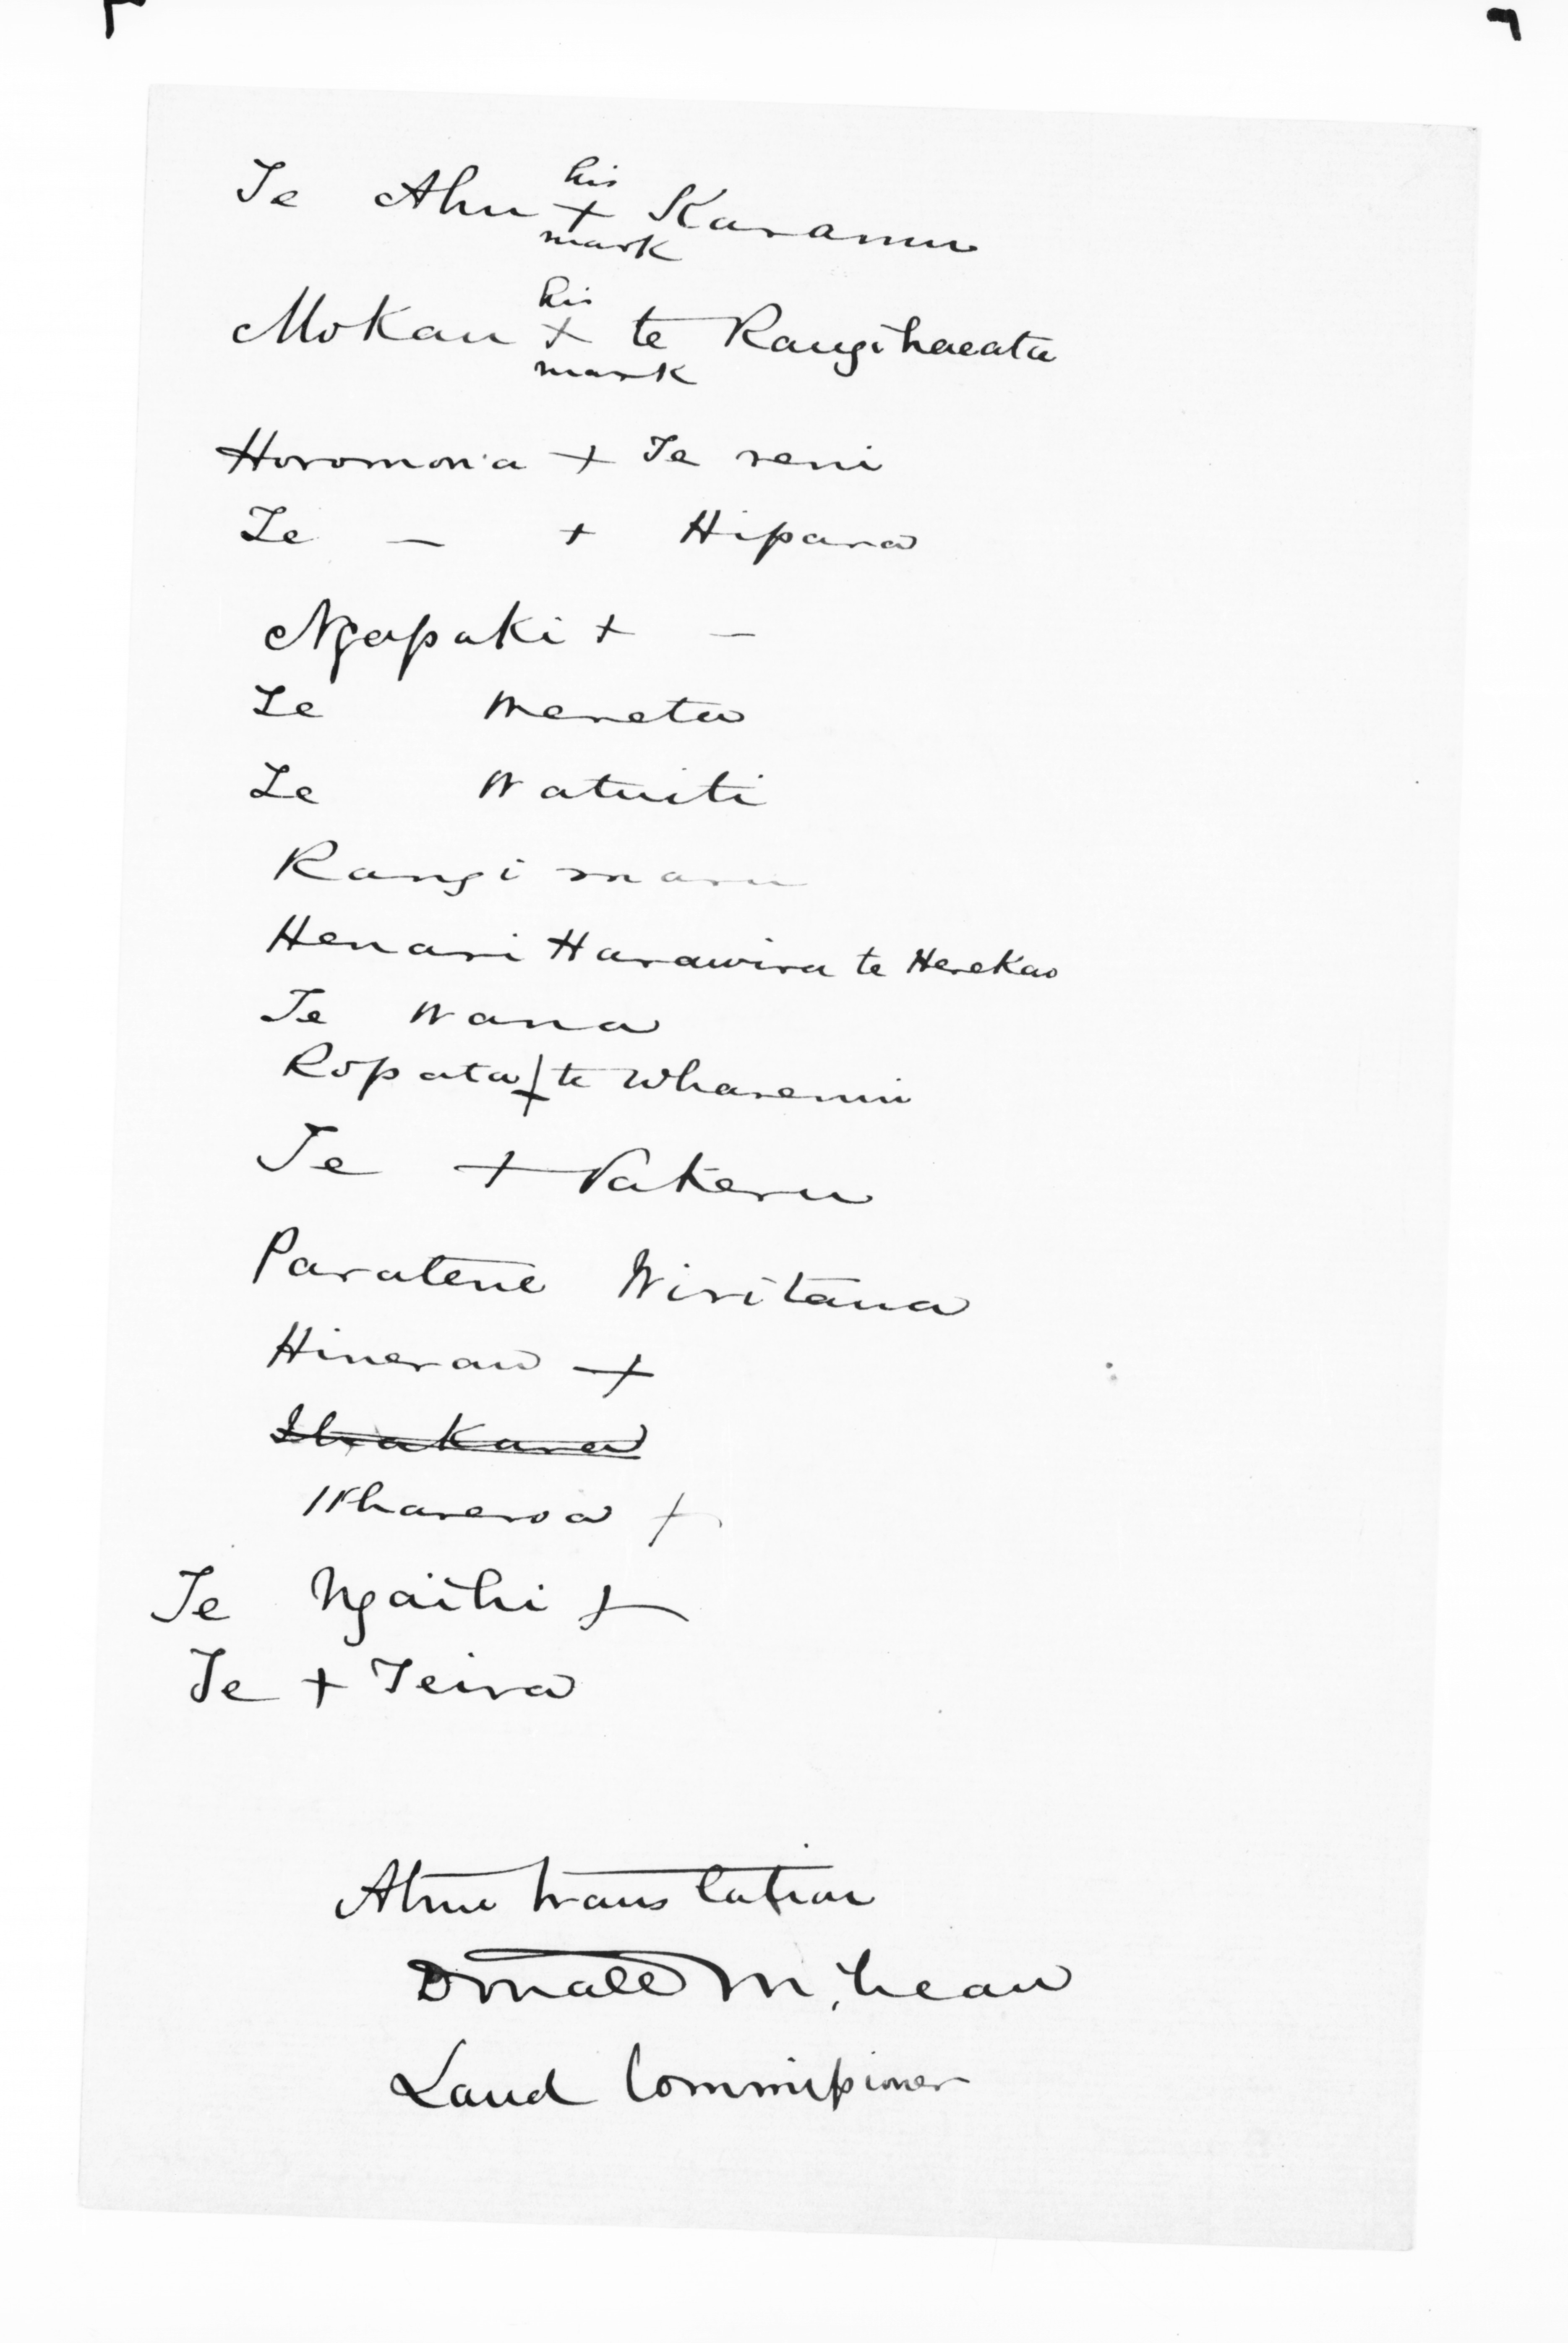 Te Ahu his + mark Karamu
Mokau his + mark te Rangihaeata
Horomona + Te reni
Te — + Hipara
Ngapaki + —
Te Meretu
Te Watuiti
Rangi maru
Henari Harawira te Herekau
Te Wana
Ropata + te Wharemui
Te + Pakeru
Paratene Wiritana
Hinerau +
Ihakara
Whareroa +
Te Ngaihi +
Te + Teira
A true translation
Donald McLean
Land Commissioner